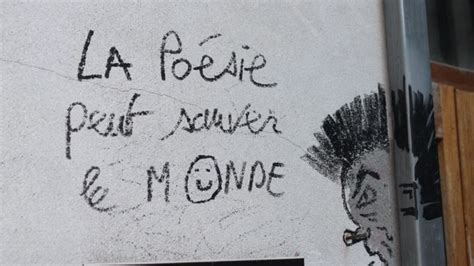 LA Poésie
peut sauver
le MONDE